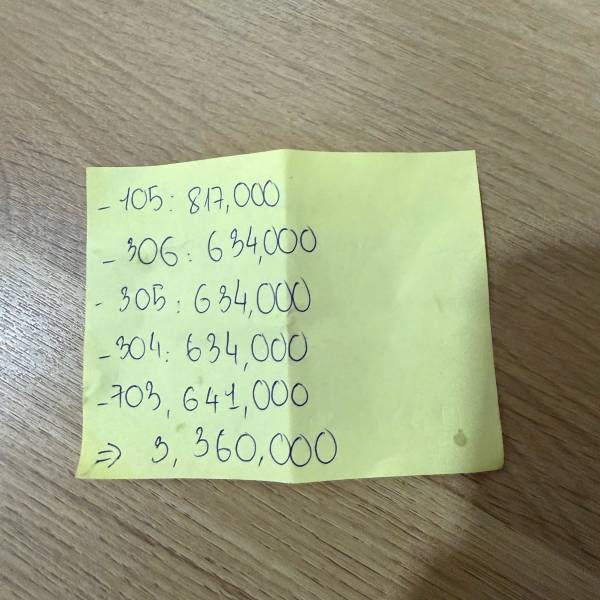 - 105: 817,000
- 306: 634,000
- 305: 634,000
- 304: 634,000
- 703, 641,000
⇒ 3,360,000